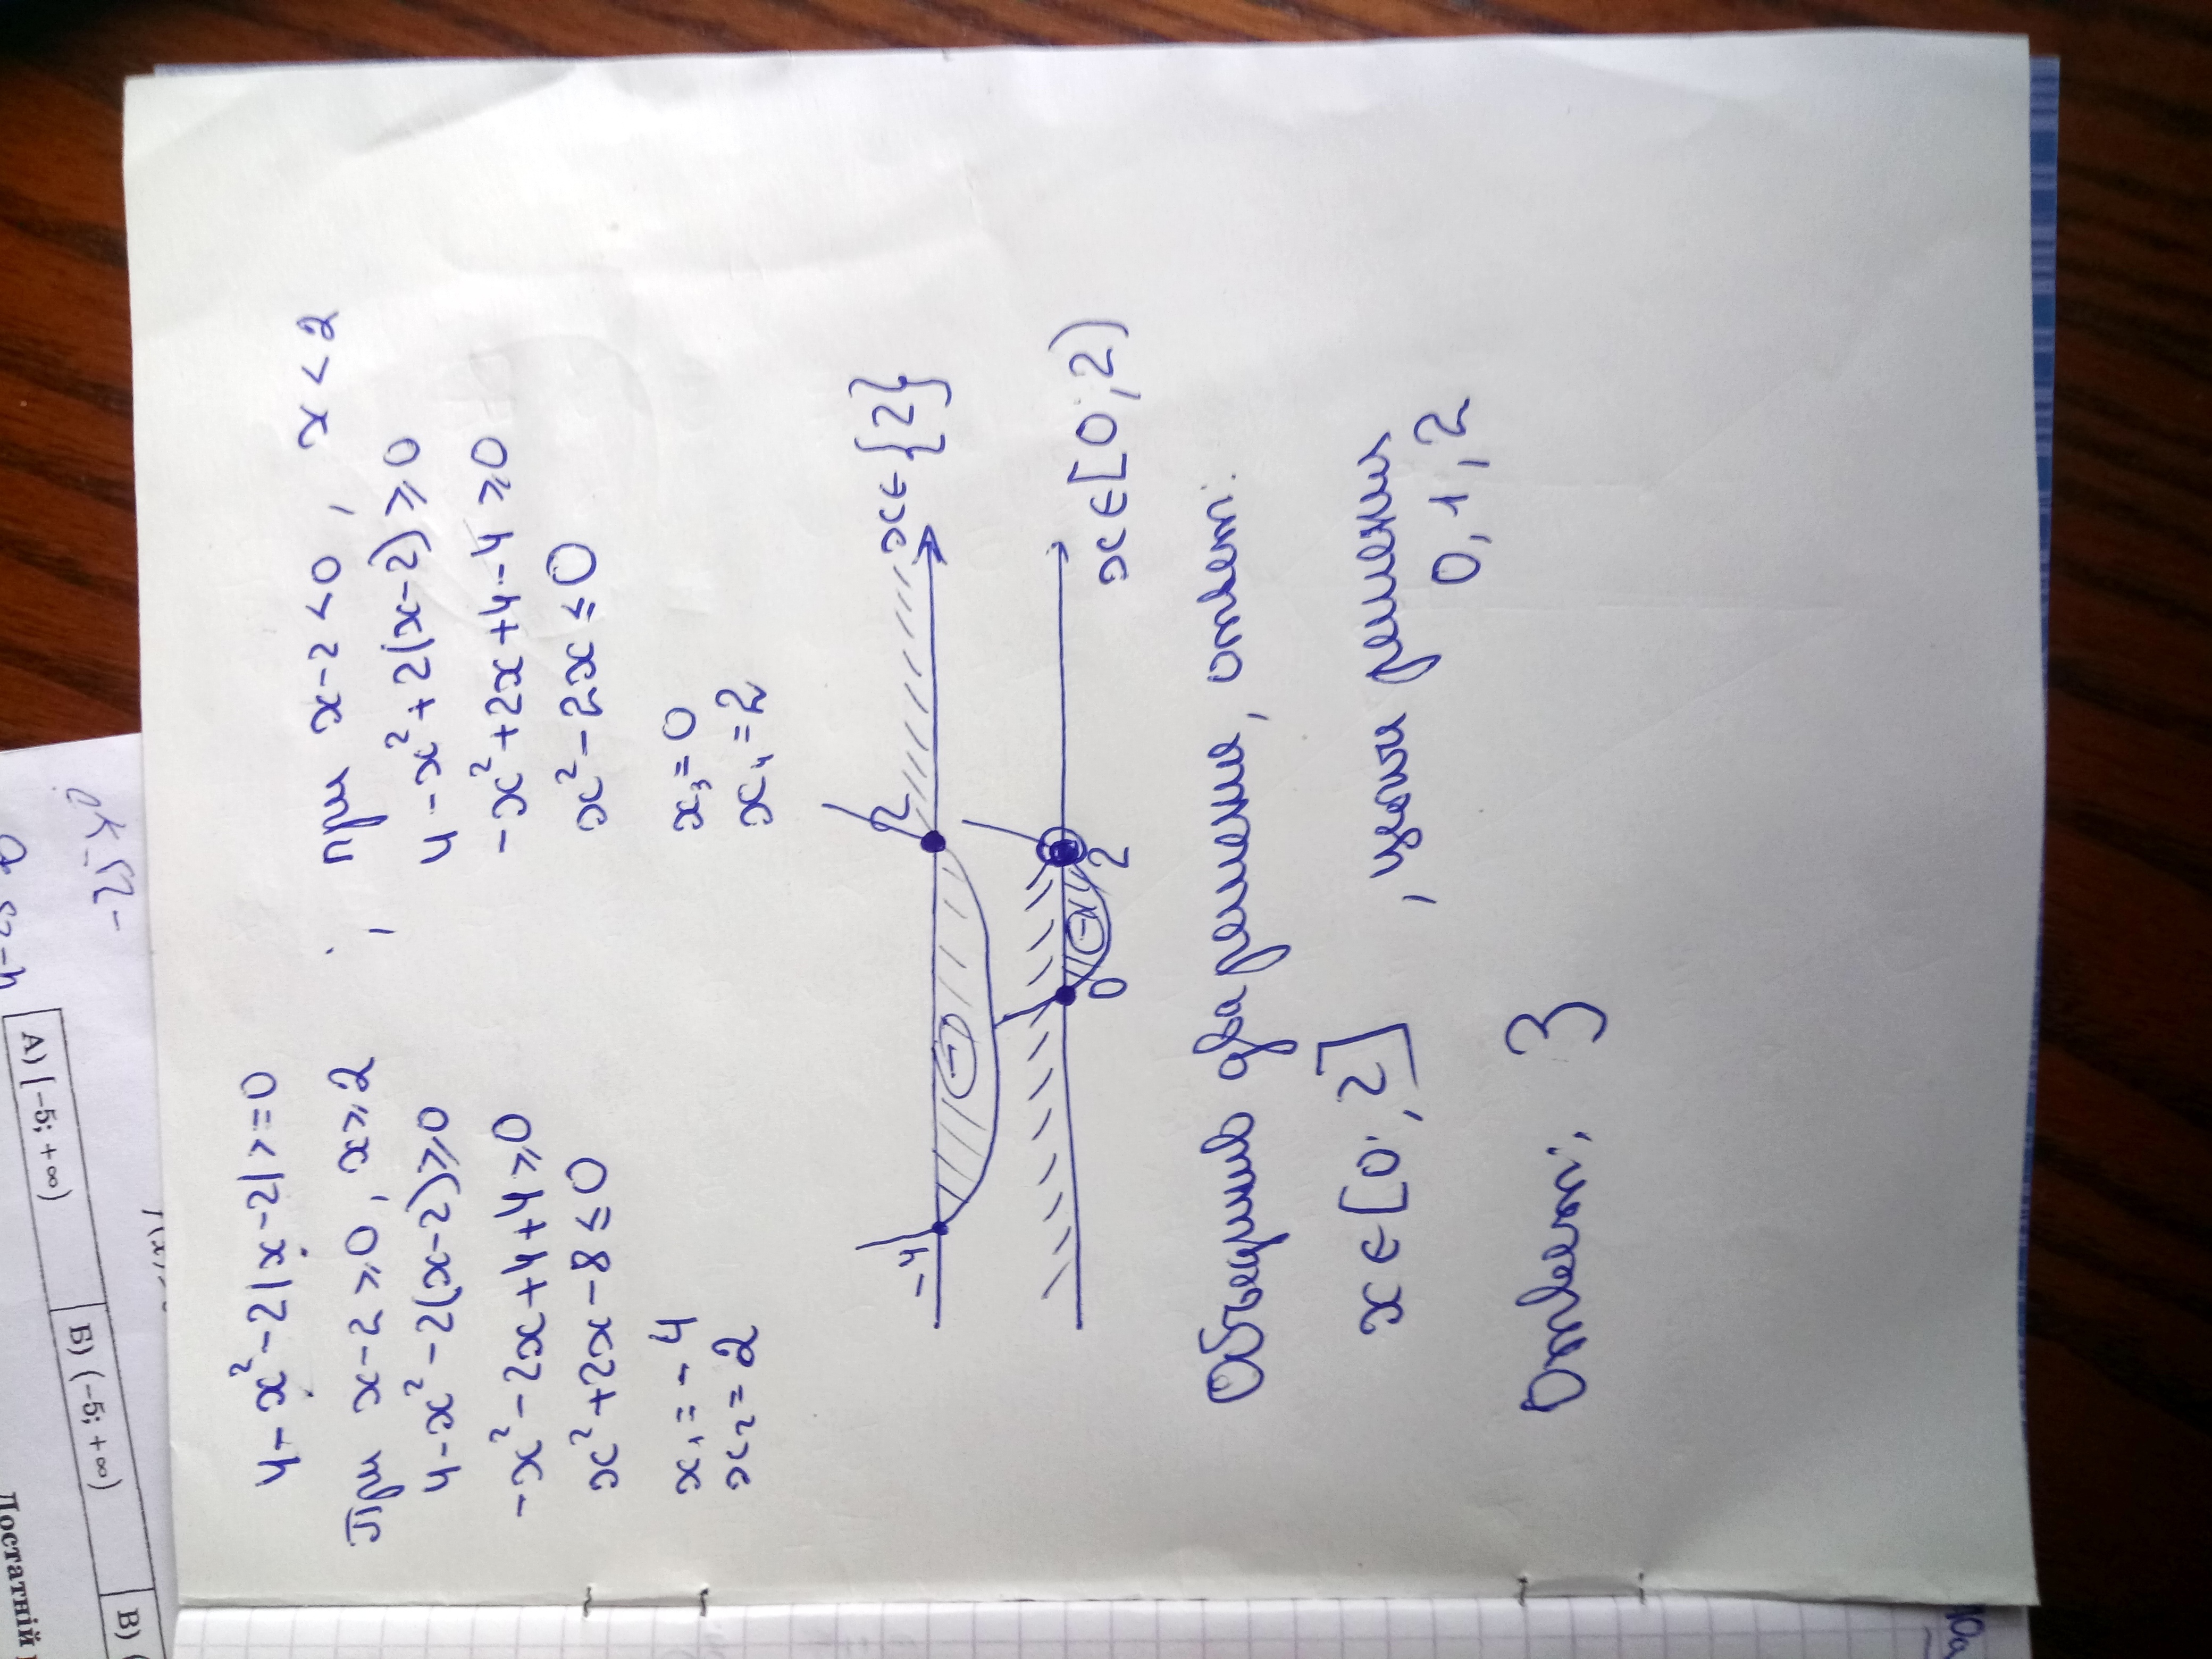 4-x²-2|x-2|>=0
При x-2≥0, x≥2
4-x²-2(x-2)≥0
-x²-2x+4+4≥0
x²+2x-8≤0
x₁=-4
x₂=2
; при x-2<0, x<2
4-x²+2(x-2)≥0
-x²+2x+4-4≥0
x²-2x≤0
x₃=0
x₄=2
-4 - 2 x∈{2}
0 - 2 x∈[0;2)
Объединив два решения, ответ:
x∈[0;2], целые решения
0,1,2
Ответ: 3
А) [-5; +∞)
Б) (-5; +∞)
В) (